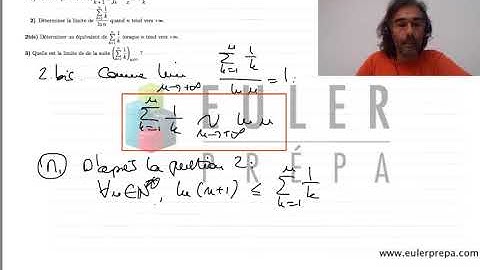 2) Déterminer la limite de $\frac{\sum_{k=1}^{n} \frac{1}{k}}{\ln n}$ quand n tend vers +∞.
2bis) Déterminer un équivalent de $\sum_{k=1}^{n} \frac{1}{k}$ lorsque n tend vers +∞.
3) Quelle est la limite de de la suite $\left(\sum_{k=1}^{n} \frac{1}{k}\right)$ ?
2.bis. Comme $\lim_{n \to +\infty} \frac{\sum_{k=1}^{n} \frac{1}{k}}{\ln n} = 1$ :
$\sum_{k=1}^{n} \frac{1}{k} \underset{n \to +\infty}{\sim} \ln n$
EULER
PRÉPA
D'après la question 2 :
∀n∈ℕ*, $\ln(n+1) \leq \sum_{k=1}^{n} \frac{1}{k}$
www.eulerprepa.com